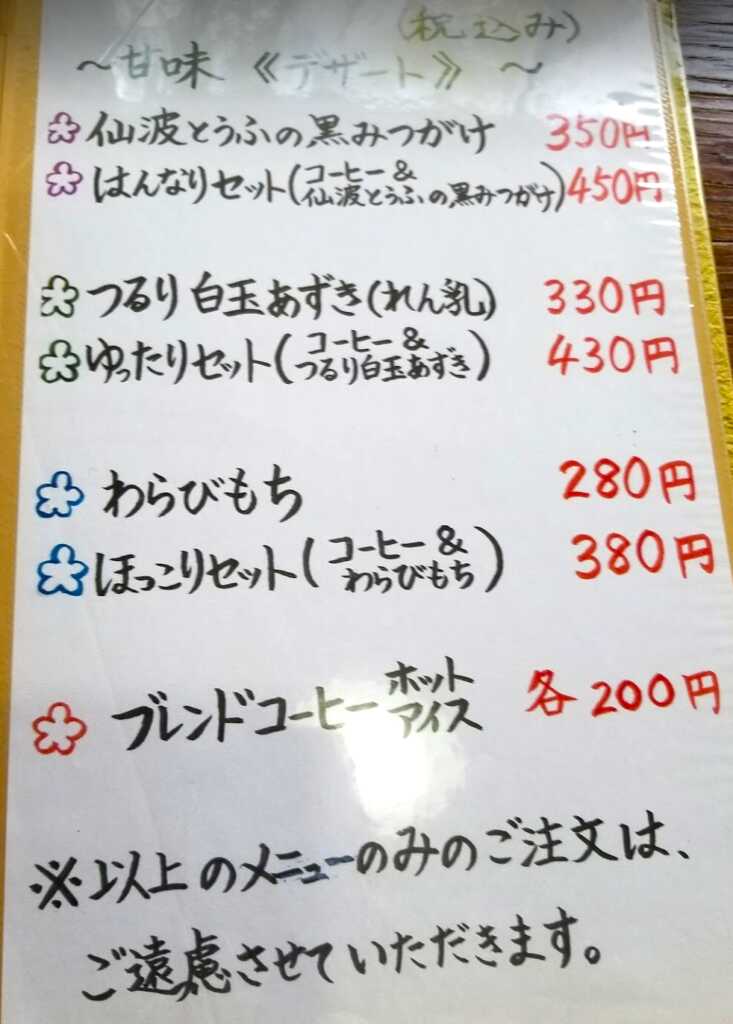 (税込み)
～甘味《デザート》～
仙波とうふの黒みつがけ 350円
はんなりセット(コーヒー&仙波とうふの黒みつがけ) 450円
つるり白玉あずき(れん乳) 330円
ゆったりセット(コーヒー&つるり白玉あずき) 430円
わらびもち 280円
ほっこりセット(コーヒー&わらびもち) 380円
ブレンドコーヒー ホット アイス 各200円
※以上のメニューのみのご注文は、
ご遠慮させていただきます。